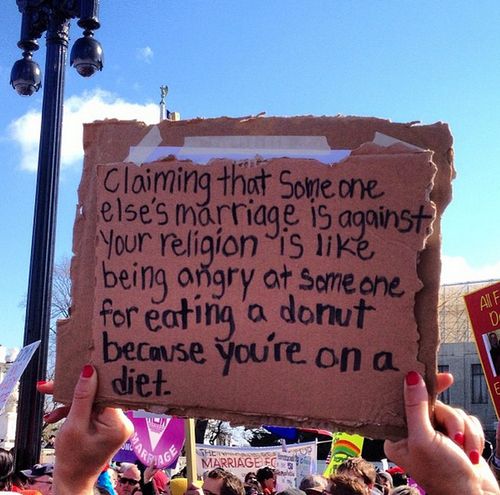 Claiming that someone
else's marriage is against
your religion is like
being angry at someone
for eating a donut
because you're on a
diet.
MARRIAGE
MARRIAGE
All